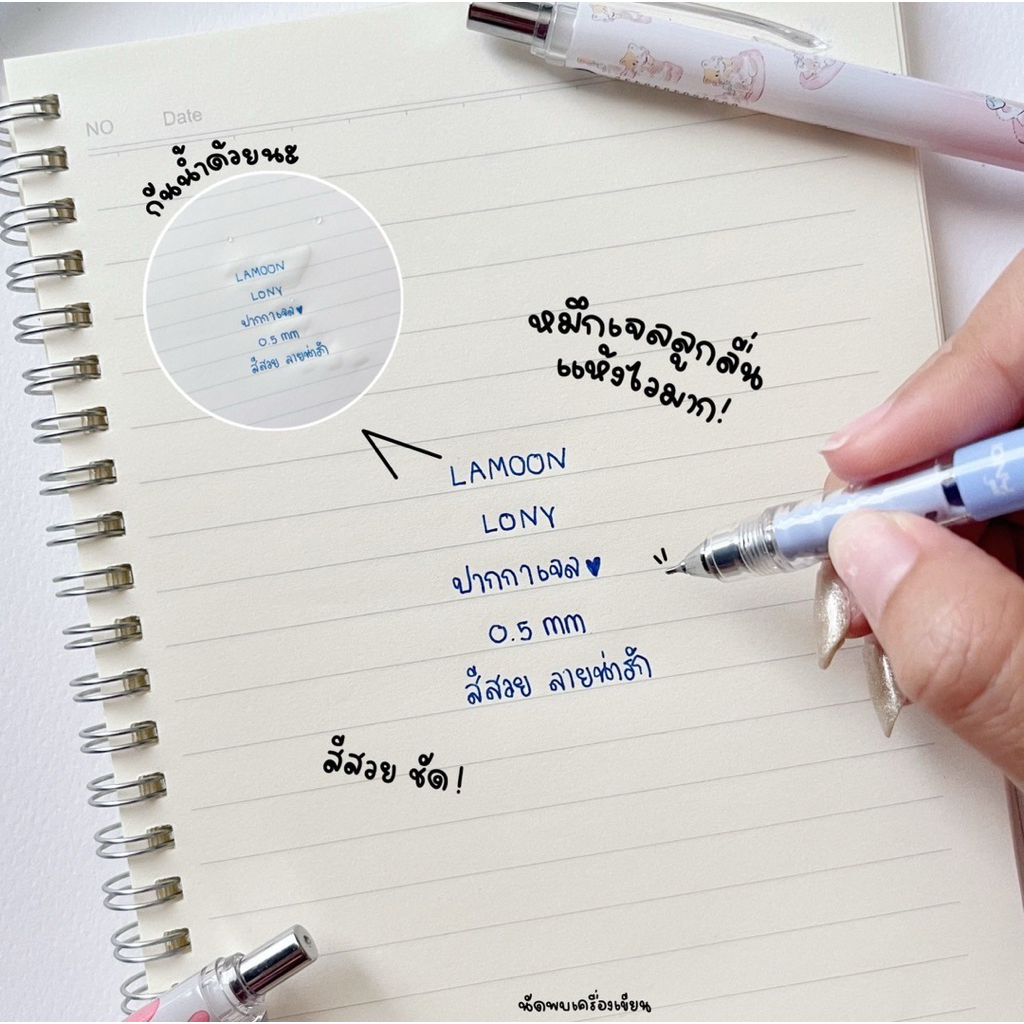 NO Date
กันน้ำด้วยนะ
LAMOON
LONY
ปากกาเจล♥
0.5 mm
สีสวย ลายน่ารัก
หมึกเจลลูกลื่น
แห้งไวมาก!
LAMOON
LONY
ปากกาเจล♥
0.5 mm
สีสวย ลายน่ารัก
สีสวย ชัด!
นัดพบเครื่องเขียน